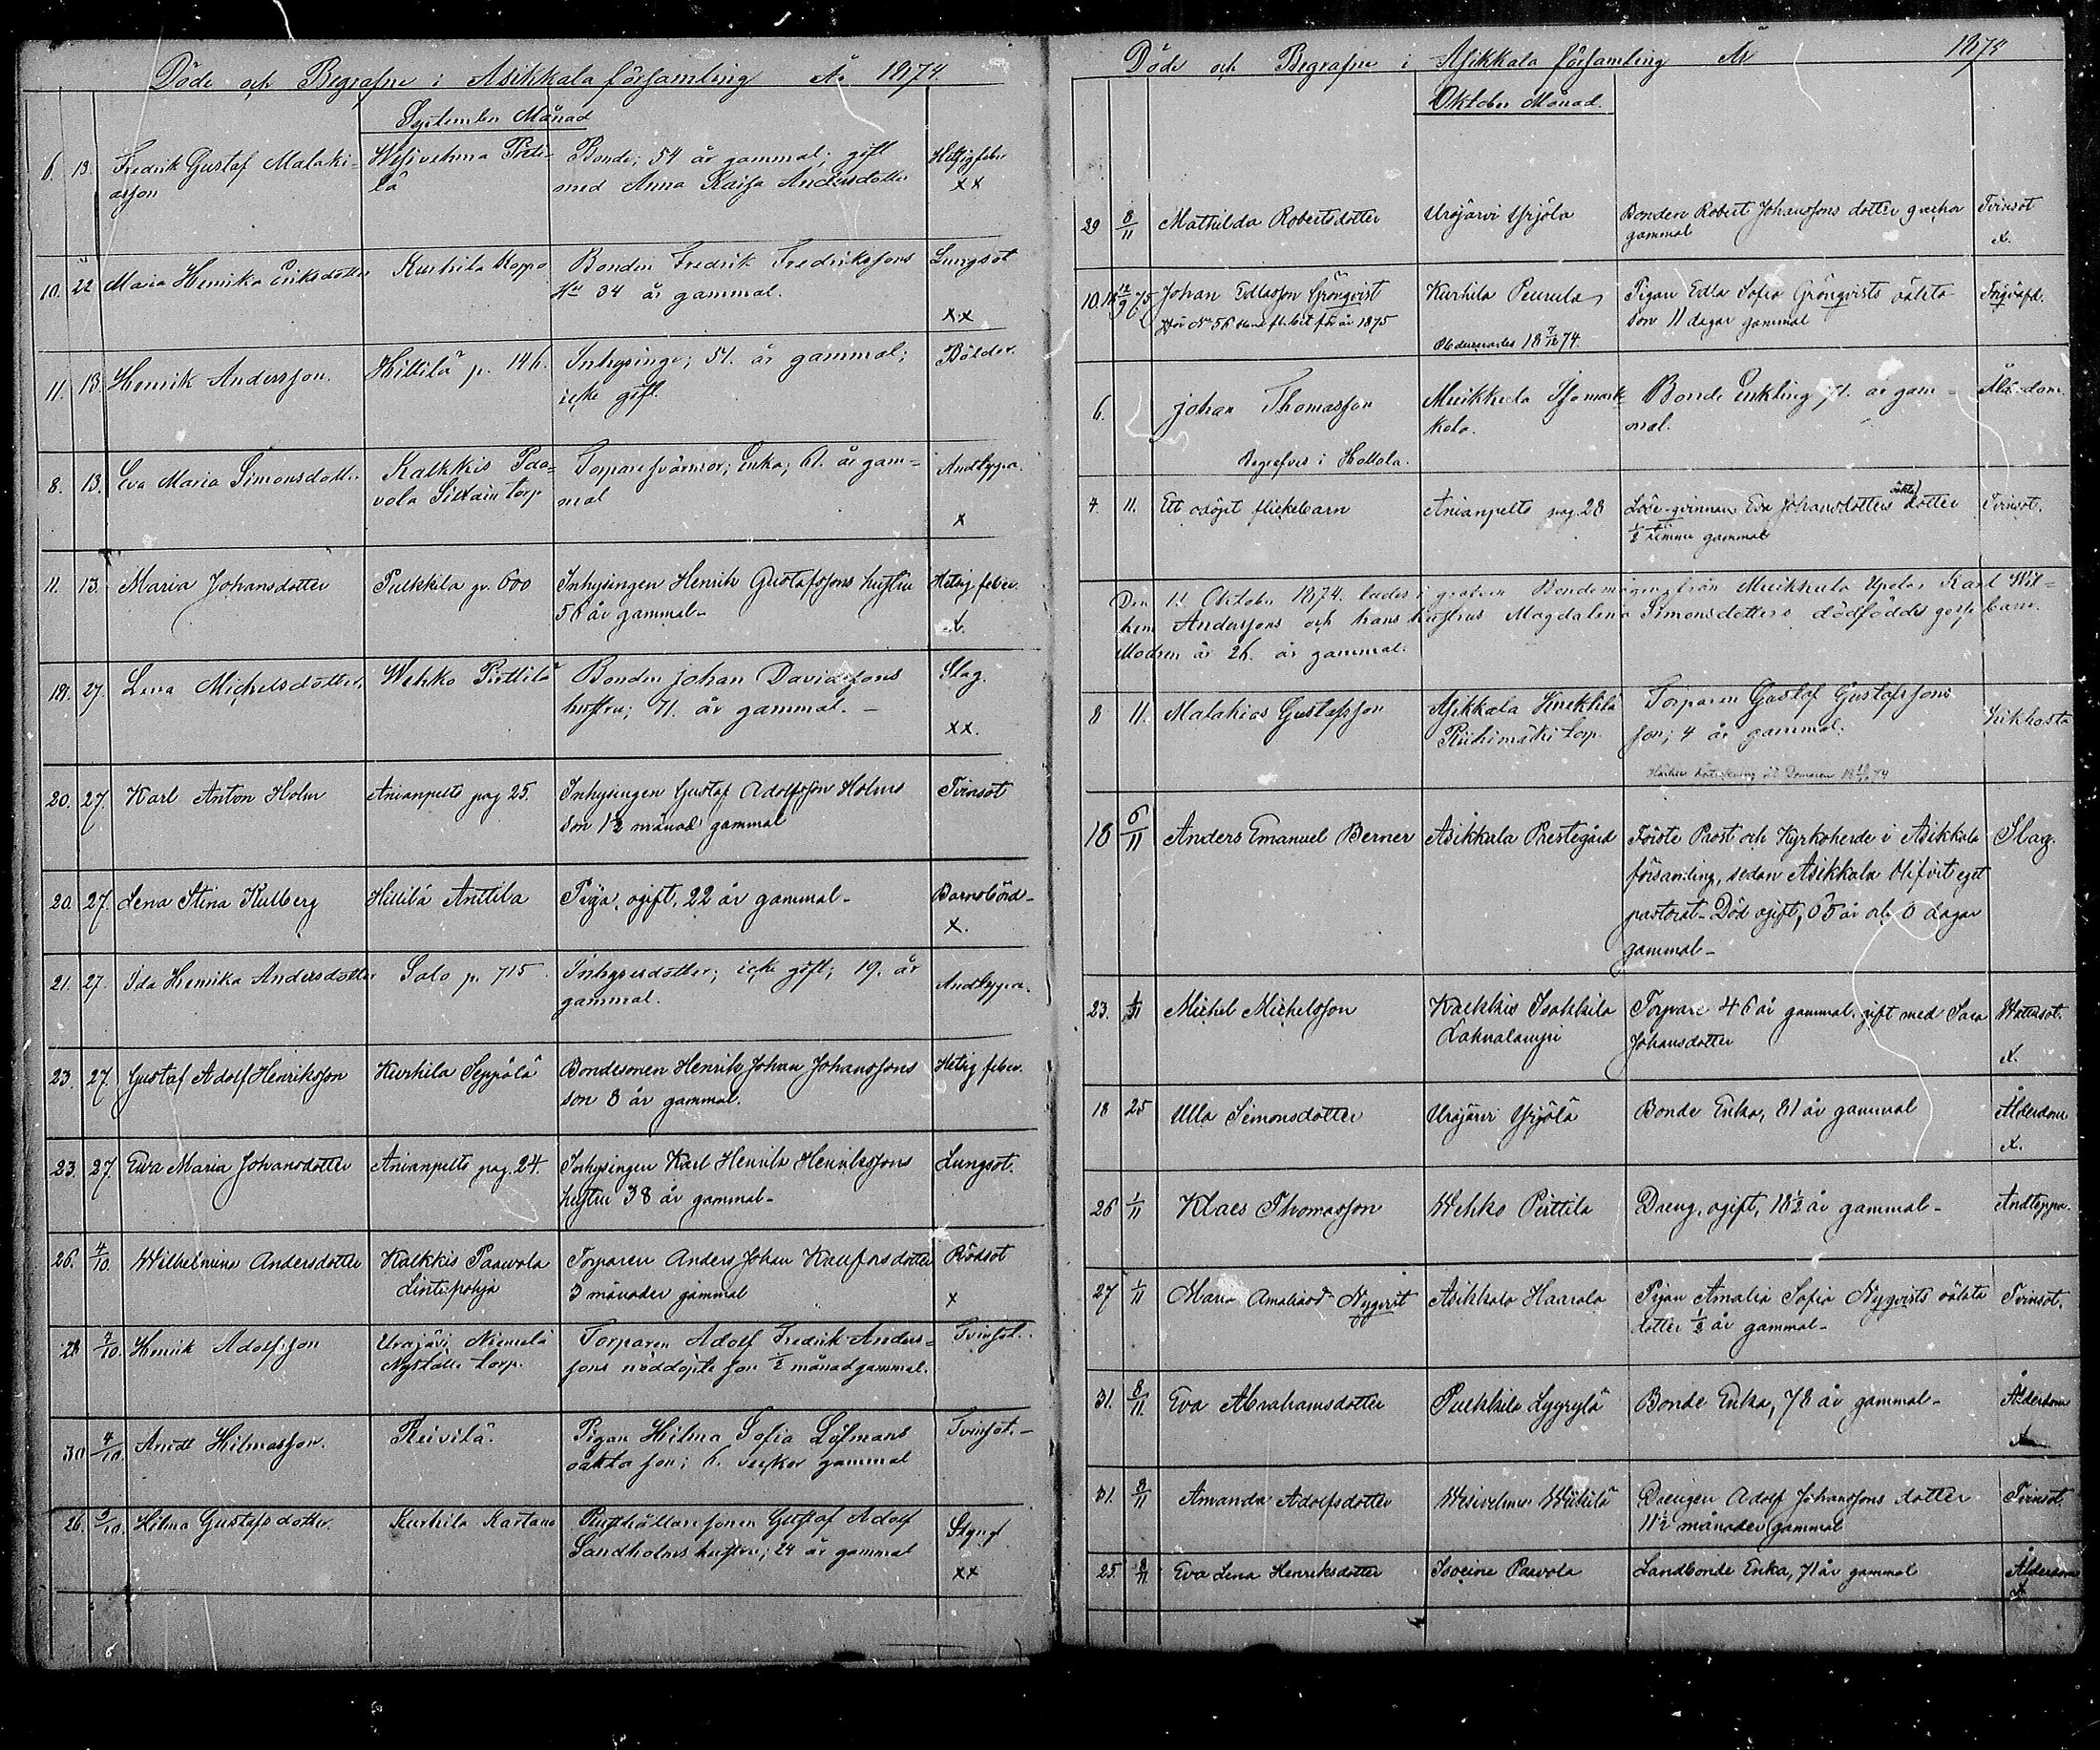 Döde och Begrafne i Asikkala församling År 1874.
September Månad
6. 13. Fredrik Gustaf Malaki- Wesivehma Pieti- Bonde; 54 år gammal; gift Hetsigfeber
asson lä med Anna Kaisa Andersdotter xx
10. 22 Maria Henrika Eriksdotter Kurhila Hoppo Bonden Fredrik Fredrikssons Lungsot
Hu 34 år gammal. xx
11. 13. Henrik Andersson. Hillilä p. 146. Inhysinge; 54. år gammal; Bölder.
icke gift.
8. 13. Eva Maria Simonsdotter Kalkkis Paa- Torpare svärmor; Enka; 61. år gam- Andtäppa.
vola torp mal x
11. 13. Maria Johansdotter Pulkkila p. 600 Inhysingen Henrik Gustafssons hustru Hetsig feber.
56 år gammal- x.
19. 27. Lena Michelsdotter, Wehko Perttilä Bonden Johan Davidssons Slag.
hustru; 71. år gammal. - xx.
20. 27. Karl Anton Holm Anianpelto pag 25. Inhysingen Gustaf Adolfsson Holms Tvinsot
son 1½ månad gammal
20. 27. Lena Stina Kulberg Hillilä Anttila Piga, ogift, 22 år gammal- Barnsbörd-
x.
21. 27. Ida Henrika Andersdotter Salo p. 715. Inhysesdotter; icke gift; 19. år Andtäppa.
gammal.
23. 27. Gustaf Adolf Henriksson Kurhila Seppälä Bondesonen Henrik Johan Johanssons Hetsig feber.
son 8 år gammal.
23. 27. Eva Maria Johansdotter Anianpelto pag. 24. Inhysingen Karl Henrik Henrikssons Lungsot.
hustru 38 år gammal-
26. 4/10. Wilhelmina Andersdotter Kalkkis Paavola Torparen Anders Johan dotter Rödsot
Lintupohja 3 månader gammal x
28 7/10. Henrik Adolfsson Urajärvi Niemelä Torparen Adolf Fredrik Anders- Tvinsot.
torp. sons nöddöpte son ½ månad gammal.
30 4/10. Antti Hilmasson. Reivilä. Pigan Hilma Sofia Löfmans Tvinsot.-
oäkta son; 6. veckor gammal
26. 9/10. Hilma Gustafsdotter. Kurhila Kartano Rusthållare sonen Gustaf Adolf Styng
Sandholms hustru; 24 år gammal xx
Döde och Begrafne i Asikkala församling År 1874
Oktober Månad.
29 8/11 Mathilda Robertsdotter Urajärvi Yrjölä Bonden Robert Johanssons dotter Tvinsot
gammal x.
10. Johan Edlasson Grönqvist Kurhila Peurula Pigan Edla Sofia Grönqvists oäkta Frigörd.
för år 1875 son 11 dagar gammal
18 74.
6. Johan Thomasson Muikkula Isomark- Bonde Enkling 71. år gam- Ålderdom.
kola. mal.
Begrafves i Hollola.
4. 11. Ett odöpt flickebarn Anianpelto pag. 28 Löse-qvinnan Eva Johansdotters oäkta dotter Tvinsot.
½ timme gammal
Den 11 Oktober 1874. lades i grafven Bondemågens från Muikkula Upola Karl Wil-
helm Anderssons och hans hustrus Magdalena Simonsdotters dödfödde gossebarn.
Modren är 26. år gammal.
8 11. Malakias Gustafsson Asikkala Knekttilä Torparen Gustaf Gustafssons Kikhosta
Riihimäki torp. son; 4 år gammal.
18 6/11 Anders Emanuel Berner Asikkala Prestegård Förste Prost och Kyrkoherde i Asikkala Slag.
församling, sedan Asikkala blifvit eget
pastorat- Död ogift, 65 år och 6 dagar
gammal-
23. 1/11 Michel Michelsson Kalkkis Isokkila Torpare 46 år gammal, gift med Sara Wattusot.
Lahnalampi Johansdotter x.
18 25 Ulla Simonsdotter Urajärvi Yrjölä Bonde Enka, 81 år gammal Ålderdom
x.
26 1/11 Klaes Thomasson Wehko Perttilä Dreng, ogift, 18½ år gammal- Andtäppa.
27 1/11 Maria Amaliasd. Nyqvist Asikkala Haarala Pigan Amalia Sofia Nyqvists oäkta Tvinsot.
dotter ½ år gammal-
31. 8/11. Eva Abrahamsdotter Pulkkila Lyyrylä Bonde Enka, 78 år gammal- Ålderdom
31. 8/11 Amanda Adolfsdotter Wesivehma Wähälä Drengen Adolf Johanssons dotter Tvinsot.
11½ månader gammal
25. 8/11 Eva Lena Henriksdotter Isoeine Paavola Landbonde Enka, 71 år gammal Ålderdom
x.